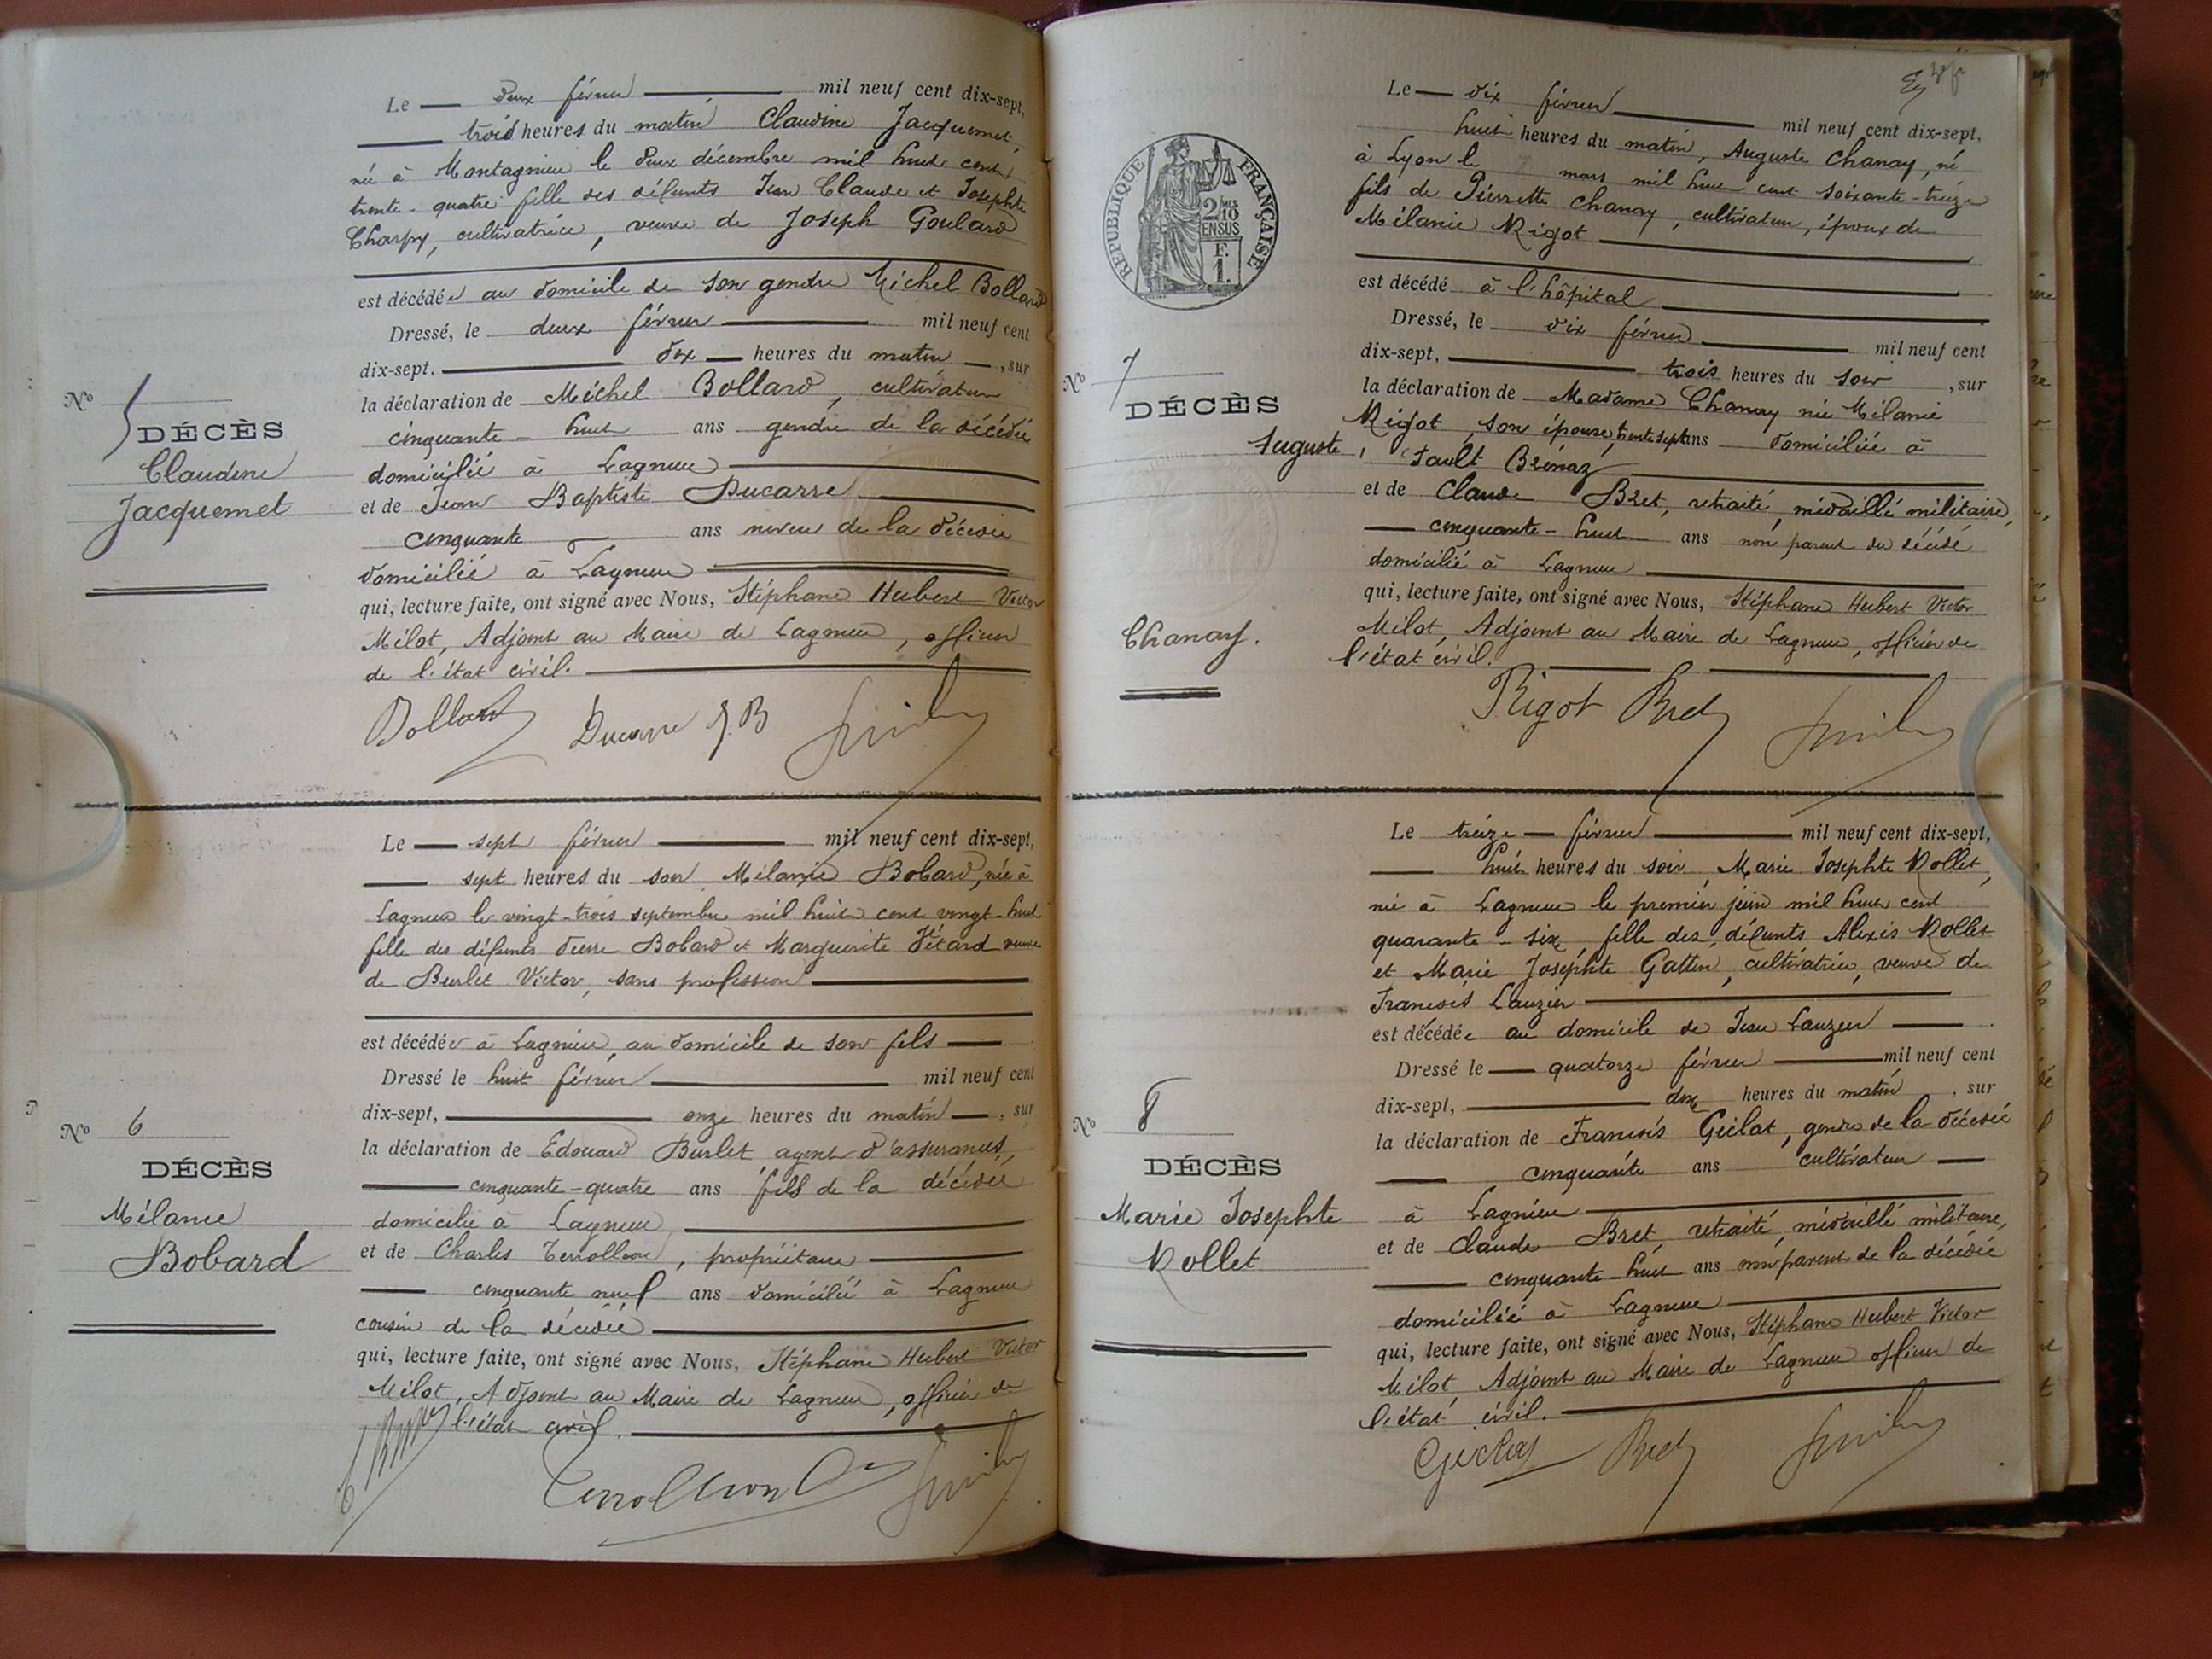 Le — deux février — mil neuf cent dix-sept,
trois heures du matin Claudine Jacquemet,
née à Montagnieu le deux décembre mil huit cent
trente-quatre fille des défunts Jean Claude et Josephte
Charpy, cultivatrice, veuve de Joseph Goulard
est décédée au domicile de son gendre Michel Bollard
Dressé, le deux février — mil neuf cent
dix-sept, — dix — heures du matin —, sur
la déclaration de Michel Bollard, cultivateur
cinquante-huit ans gendre de la décédée
domicilié à Lagnieu
et de Jean Baptiste Ducarre
cinquante — ans neveu de la décédée
domicilié à Lagnieu
qui, lecture faite, ont signé avec Nous, Stéphane Hubert Victor
Milot, Adjoint au Maire de Lagnieu, officier
de l'état civil.
Bollard Ducarre J.B
No 5
DÉCÈS
Claudine
Jacquemet
Le — sept février — mil neuf cent dix-sept,
— sept heures du soir Mélanie Bobard, née à
Lagnieu le vingt-trois septembre mil huit cent vingt-huit
fille des défunts Pierre Bobard et Marguerite Tétard veuve
de Burlet Victor, sans profession
est décédée à Lagnieu, au domicile de son fils —
Dressé le huit février — mil neuf cent
dix-sept, — onze heures du matin —, sur
la déclaration de Edouard Burlet agent d'assurances,
— cinquante-quatre ans fils de la décédée
domicilié à Lagnieu
et de Charles Terrollion, propriétaire
— cinquante neuf ans domicilié à Lagnieu
cousin de la décédée
qui, lecture faite, ont signé avec Nous, Stéphane Hubert Victor
Milot, Adjoint au Maire de Lagnieu, officier de
l'état civil.
No 6
DÉCÈS
Mélanie
Bobard
Le — dix février — mil neuf cent dix-sept,
huit heures du matin, Auguste Chanay, né
à Lyon le 7 mars mil huit cent soixante-treize
fils de Pierrette Chanay, cultivateur, époux de
Mélanie Rigot
est décédé à l'hôpital
Dressé, le dix février — mil neuf cent
dix-sept, — trois heures du soir, sur
la déclaration de Madame Chanay née Mélanie
Rigot, son épouse, trente sept ans domiciliée à
Sault Brénaz
et de Claude Bret, retraité, médaillé militaire,
— cinquante-huit ans non parent du décédé
domicilié à Lagnieu
qui, lecture faite, ont signé avec Nous, Stéphane Hubert Victor
Milot, Adjoint au Maire de Lagnieu, officier de
l'état civil.
Rigot Bret
RÉPUBLIQUE FRANÇAISE
2/10MES
EN SUS
F.
1.
No 7
DÉCÈS
Auguste
Chanay.
Le treize — février — mil neuf cent dix-sept,
— huit heures du soir, Marie Josephte Rollet,
née à Lagnieu le premier juin mil huit cent
quarante-six, fille des défunts Alexis Rollet
et Marie Josephte Gallin, cultivatrice, veuve de
François Lauzier
est décédée au domicile de Jean Lauzier
Dressé le — quatorze février — mil neuf cent
dix-sept, — dix heures du matin, sur
la déclaration de François Guilat, gendre de la décédée
— cinquante ans cultivateur —
à Lagnieu
et de Claude Bret, retraité, médaillé militaire,
— cinquante-huit ans non parent de la décédée
domicilié à Lagnieu
qui, lecture faite, ont signé avec Nous, Stéphane Hubert Victor
Milot, Adjoint au Maire de Lagnieu officier de
l'état civil.
Bret
No 8
DÉCÈS
Marie Josephte
Rollet